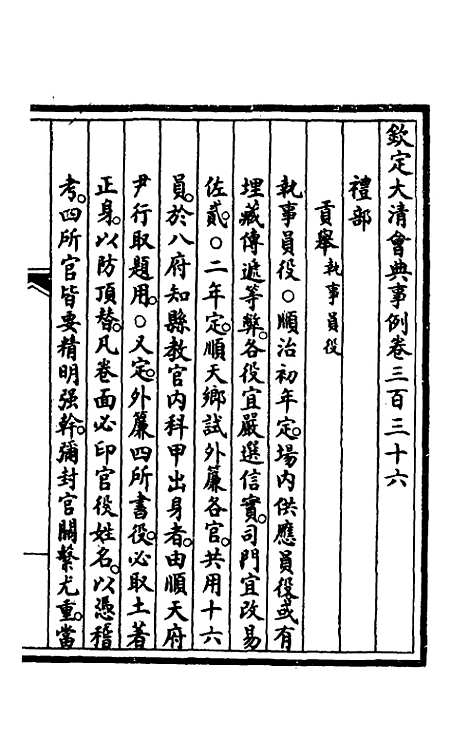 欽定大清會典事例卷三百三十六
禮部
貢舉執事員役
執事員役○順治初年定。場內供應員役。或有
埋藏傳遞等弊。各役宜嚴選信實。司門宜改易
佐貳。○二年定。順天鄉試外簾各官。共用十六
員。於八府知縣教官內科甲出身者。由順天府
尹行取題用。○又定。外簾四所書役。必取土著
正身。以防頂替。凡卷面必印官役姓名。以憑稽
考。四所官皆要精明强幹。彌封官關繫尤重。當